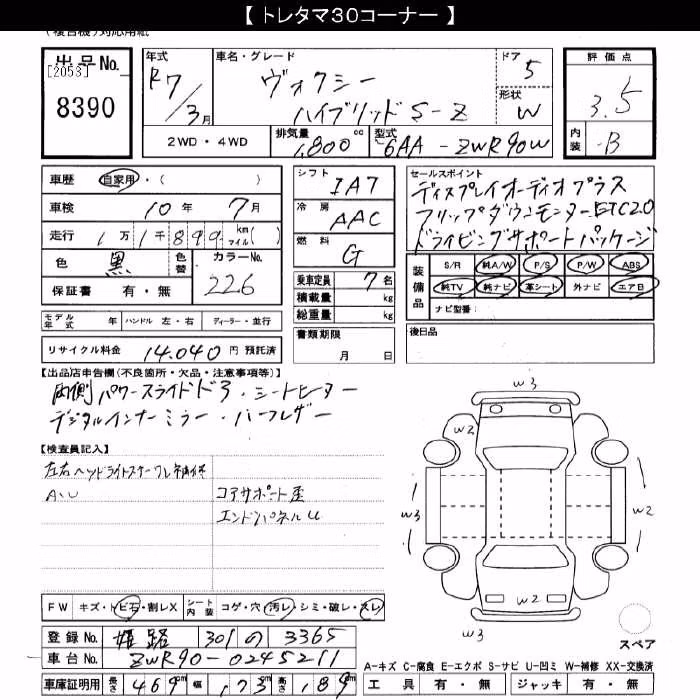 【 トレタマ30コーナー 】
(複合機)対応用紙
出品No. [2053] 8390
年式 R7/3月
車名・グレード ヴォクシー
ハイブリッド S-Z
ドア 5
形状 W
評価点 3.5
内装 B
2WD・4WD
排気量 1,800cc
型式 6AA-ZWR90W
車歴 自家用・( )
車検 10年 7月
走行 1万1千899 km マイル( )
色 黒 色替
カラーNo. 226
保証書 有・無
モデル年式 年 ハンドル 左・右 ディーラー・並行
リサイクル料金 14,040 円 預託済
シフト IAT
冷房 AAC
燃料 G
乗車定員 7名
積載量 kg
総重量 kg
書類期限
月 日
セールスポイント
ディスプレイオーディオプラス
フリップダウンモニターETC2.0
ドライビングサポートパッケージ
装備品
S/R 純A/W P/S P/W ABS
純TV 純ナビ 革シート 外ナビ エアB
ナビ型番:
後日品
【出品店申告欄(不良箇所・欠品・注意事項等)】
両側パワースライドドア・シートヒーター
デジタルインナーミラー・ハーフレザー
【検査員記入】
左右ヘッドライトステー
A・U
コアサポート歪
エンドパネルU
w3
w2 w2
w3 w2
w2
w3
スペア
FW キズ・トビ石・割レX
シート内装 コゲ・穴・汚レ・シミ・破レ・スレ
登録No. 姫路 301 の 3365
車台No. ZWR90-0245211
車庫証明用 長さ 469cm 幅 173cm 高さ 189cm
A-キズ C-腐食 E-エクボ S-サビ U-凹ミ W-補修 XX-交換済
工具 有・無 ジャッキ 有・無